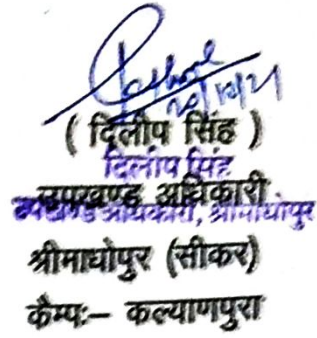 ( दिलीप सिंह )
दिलीप सिंह
उपखण्ड अधिकारी
उपखण्ड अधिकारी, श्रीमाधोपुर
श्रीमाधोपुर (सीकर)
कैम्पः– कल्याणपुरा